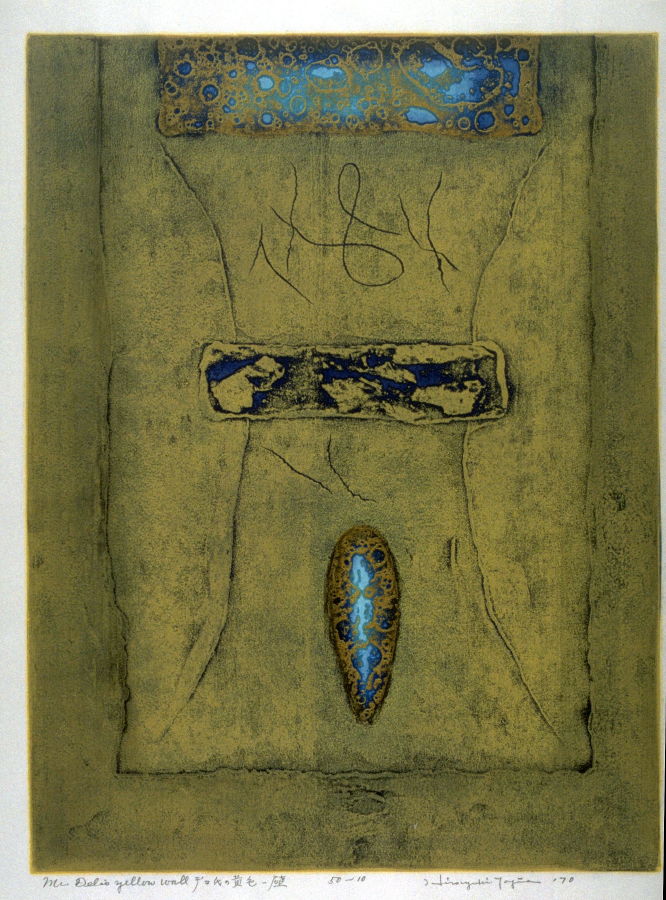 Mr. Delio yellow wall デリオ氏の黄色い壁 50-10 Hiroyuki Tajima '70